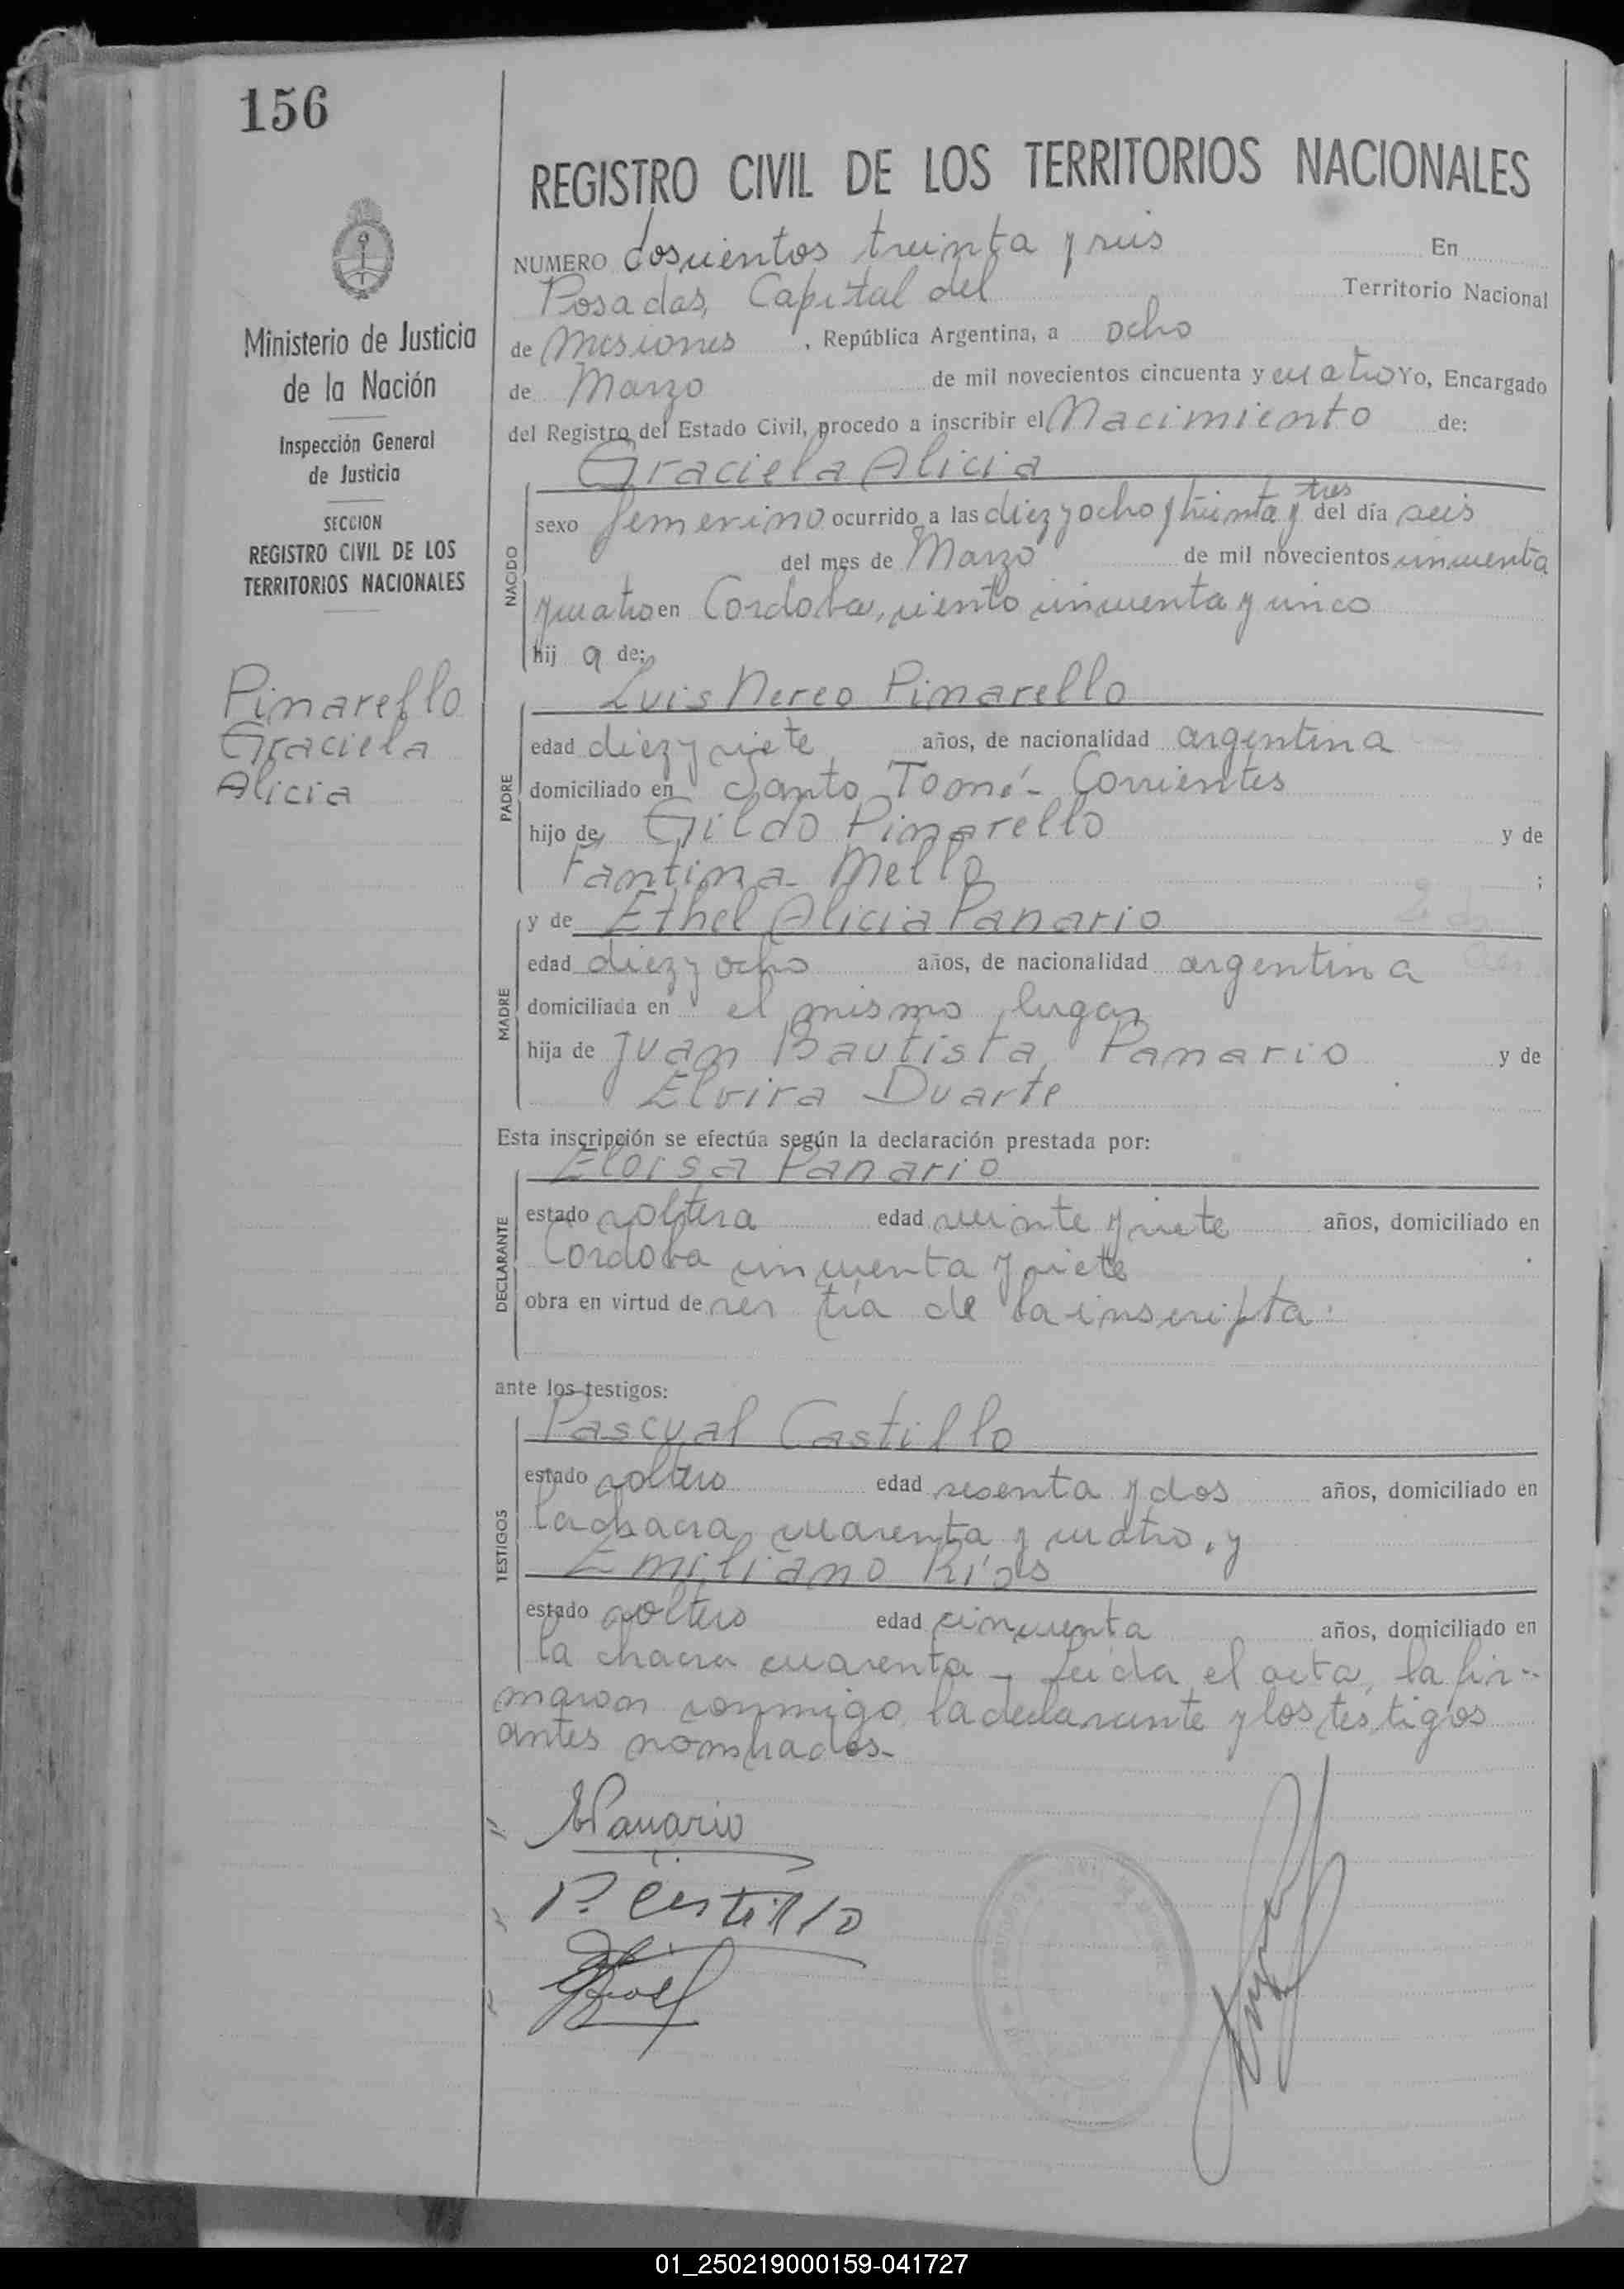 156
Ministerio de Justicia
de la Nación
Inspección General
de Justicia
SECCION
REGISTRO CIVIL DE LOS
TERRITORIOS NACIONALES
Pinarello
Graciela
Alicia
REGISTRO CIVIL DE LOS TERRITORIOS NACIONALES
NUMERO doscientos treinta y seis En
Posadas, Capital del Territorio Nacional
de Misiones, República Argentina, a ocho
de Marzo de mil novecientos cincuenta y cuatro Yo, Encargado
del Registro del Estado Civil, procedo a inscribir el Nacimiento de:
Graciela Alicia
NACIDO
sexo femenino ocurrido a las diez y ocho y treinta y tres del día seis
del mes de Marzo de mil novecientos cincuenta
y cuatro en Cordoba, ciento cincuenta y cinco
hij a de:
Luis Nereo Pinarello
PADRE
edad diez y siete años, de nacionalidad argentina
domiciliado en Santo Tomé - Corrientes
hijo de Gildo Pinarello y de
Fantina Mello ;
y de Ethel Alicia Panario
MADRE
edad diez y ocho años, de nacionalidad argentina
domiciliada en el mismo lugar
hija de Juan Bautista Panario y de
Elvira Duarte
Esta inscripción se efectúa según la declaración prestada por:
Eloisa Panario
DECLARANTE
estado soltera edad veinte y siete años, domiciliado en
Cordoba cincuenta y siete
obra en virtud de ser tía de la inscripta.
ante los testigos:
Pascual Castillo
TESTIGOS
estado soltero edad sesenta y dos años, domiciliado en
la chacra cuarenta y cuatro, y
Emiliano Ríos
estado soltero edad cincuenta años, domiciliado en
la chacra cuarenta - Leida el acta, la fir-
maron conmigo la declarante y los testigos
antes nombrados.-
EPanario
P. Castillo
01_250219000159-041727